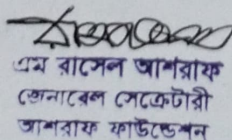 এম রাসেল আশরাফ
জেনারেল সেক্রেটারী
আশরাফ ফাউন্ডেশন